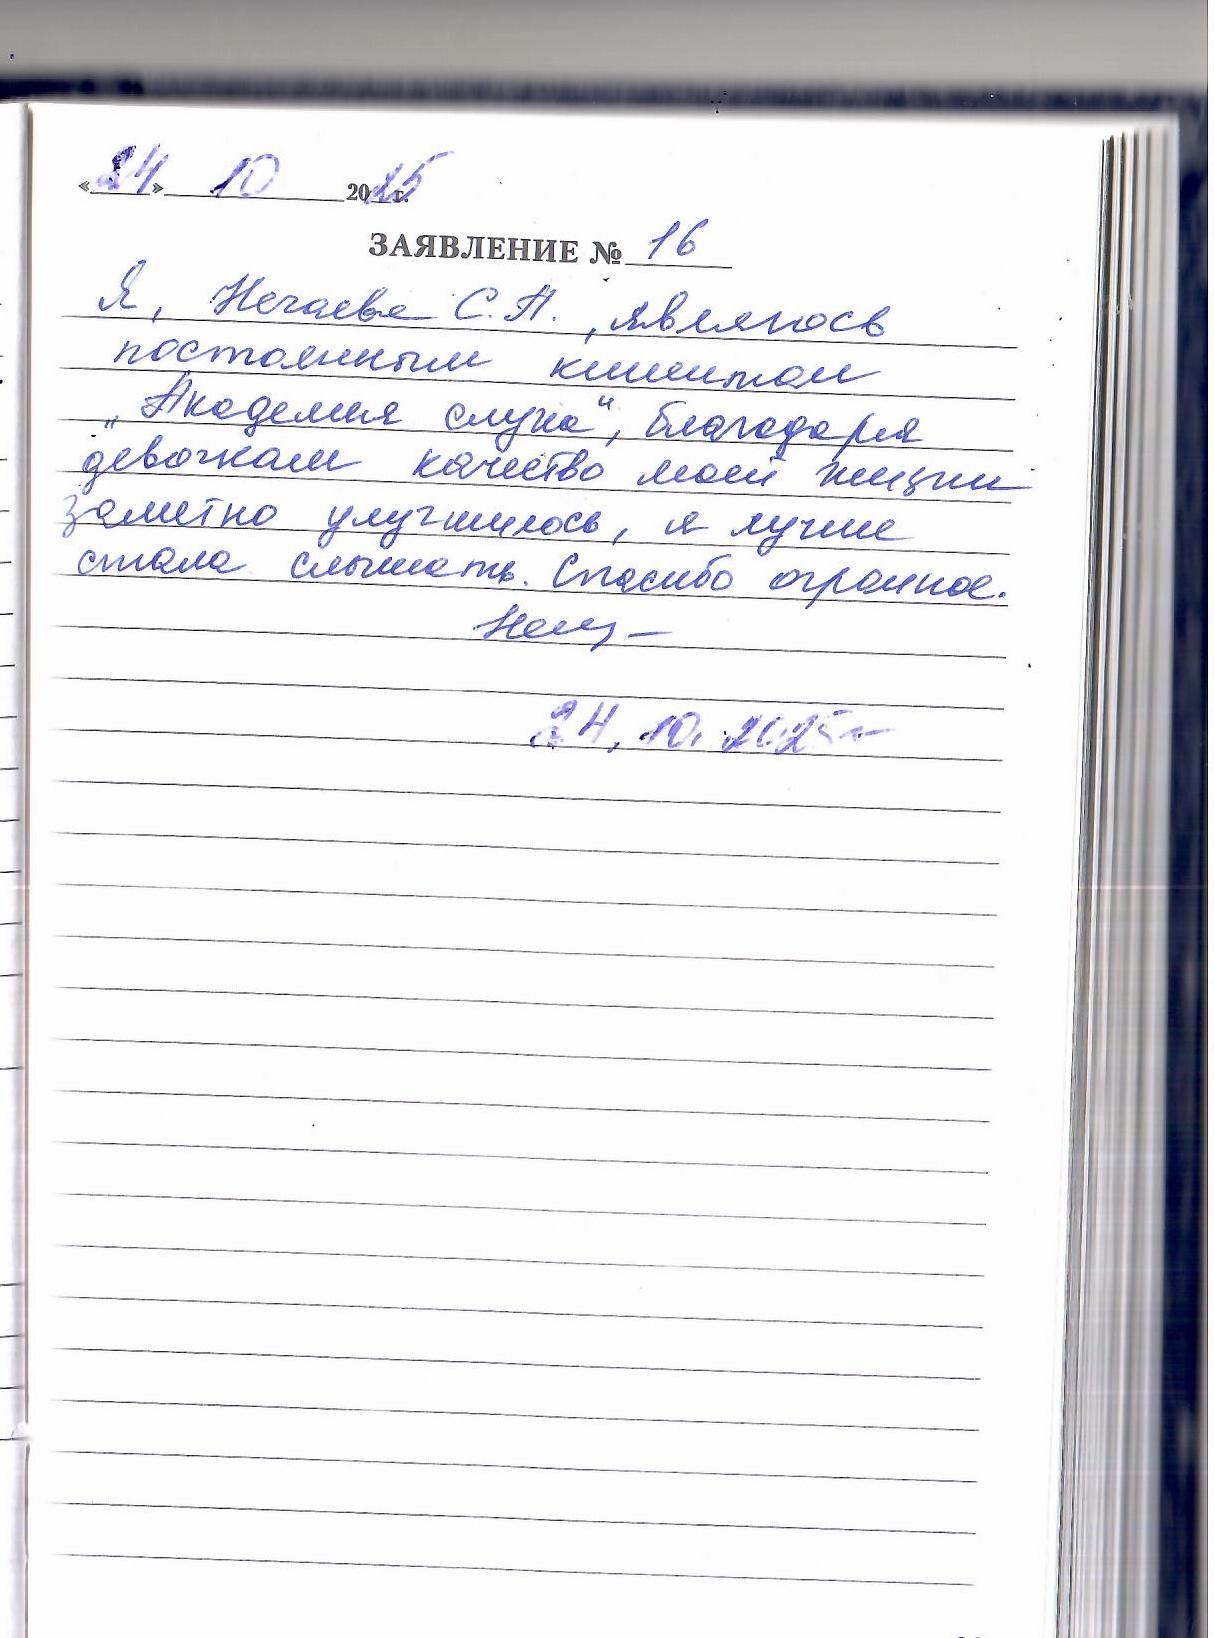 «24» 10 2025 г.
ЗАЯВЛЕНИЕ № 16
Я, Нечаева С.П., являюсь
постоянным клиентом
„Академия слуха“, благодаря
девочкам качество моей жизни
заметно улучшилось, я лучше
стала слышать. Спасибо огромное.
24.10.2025г